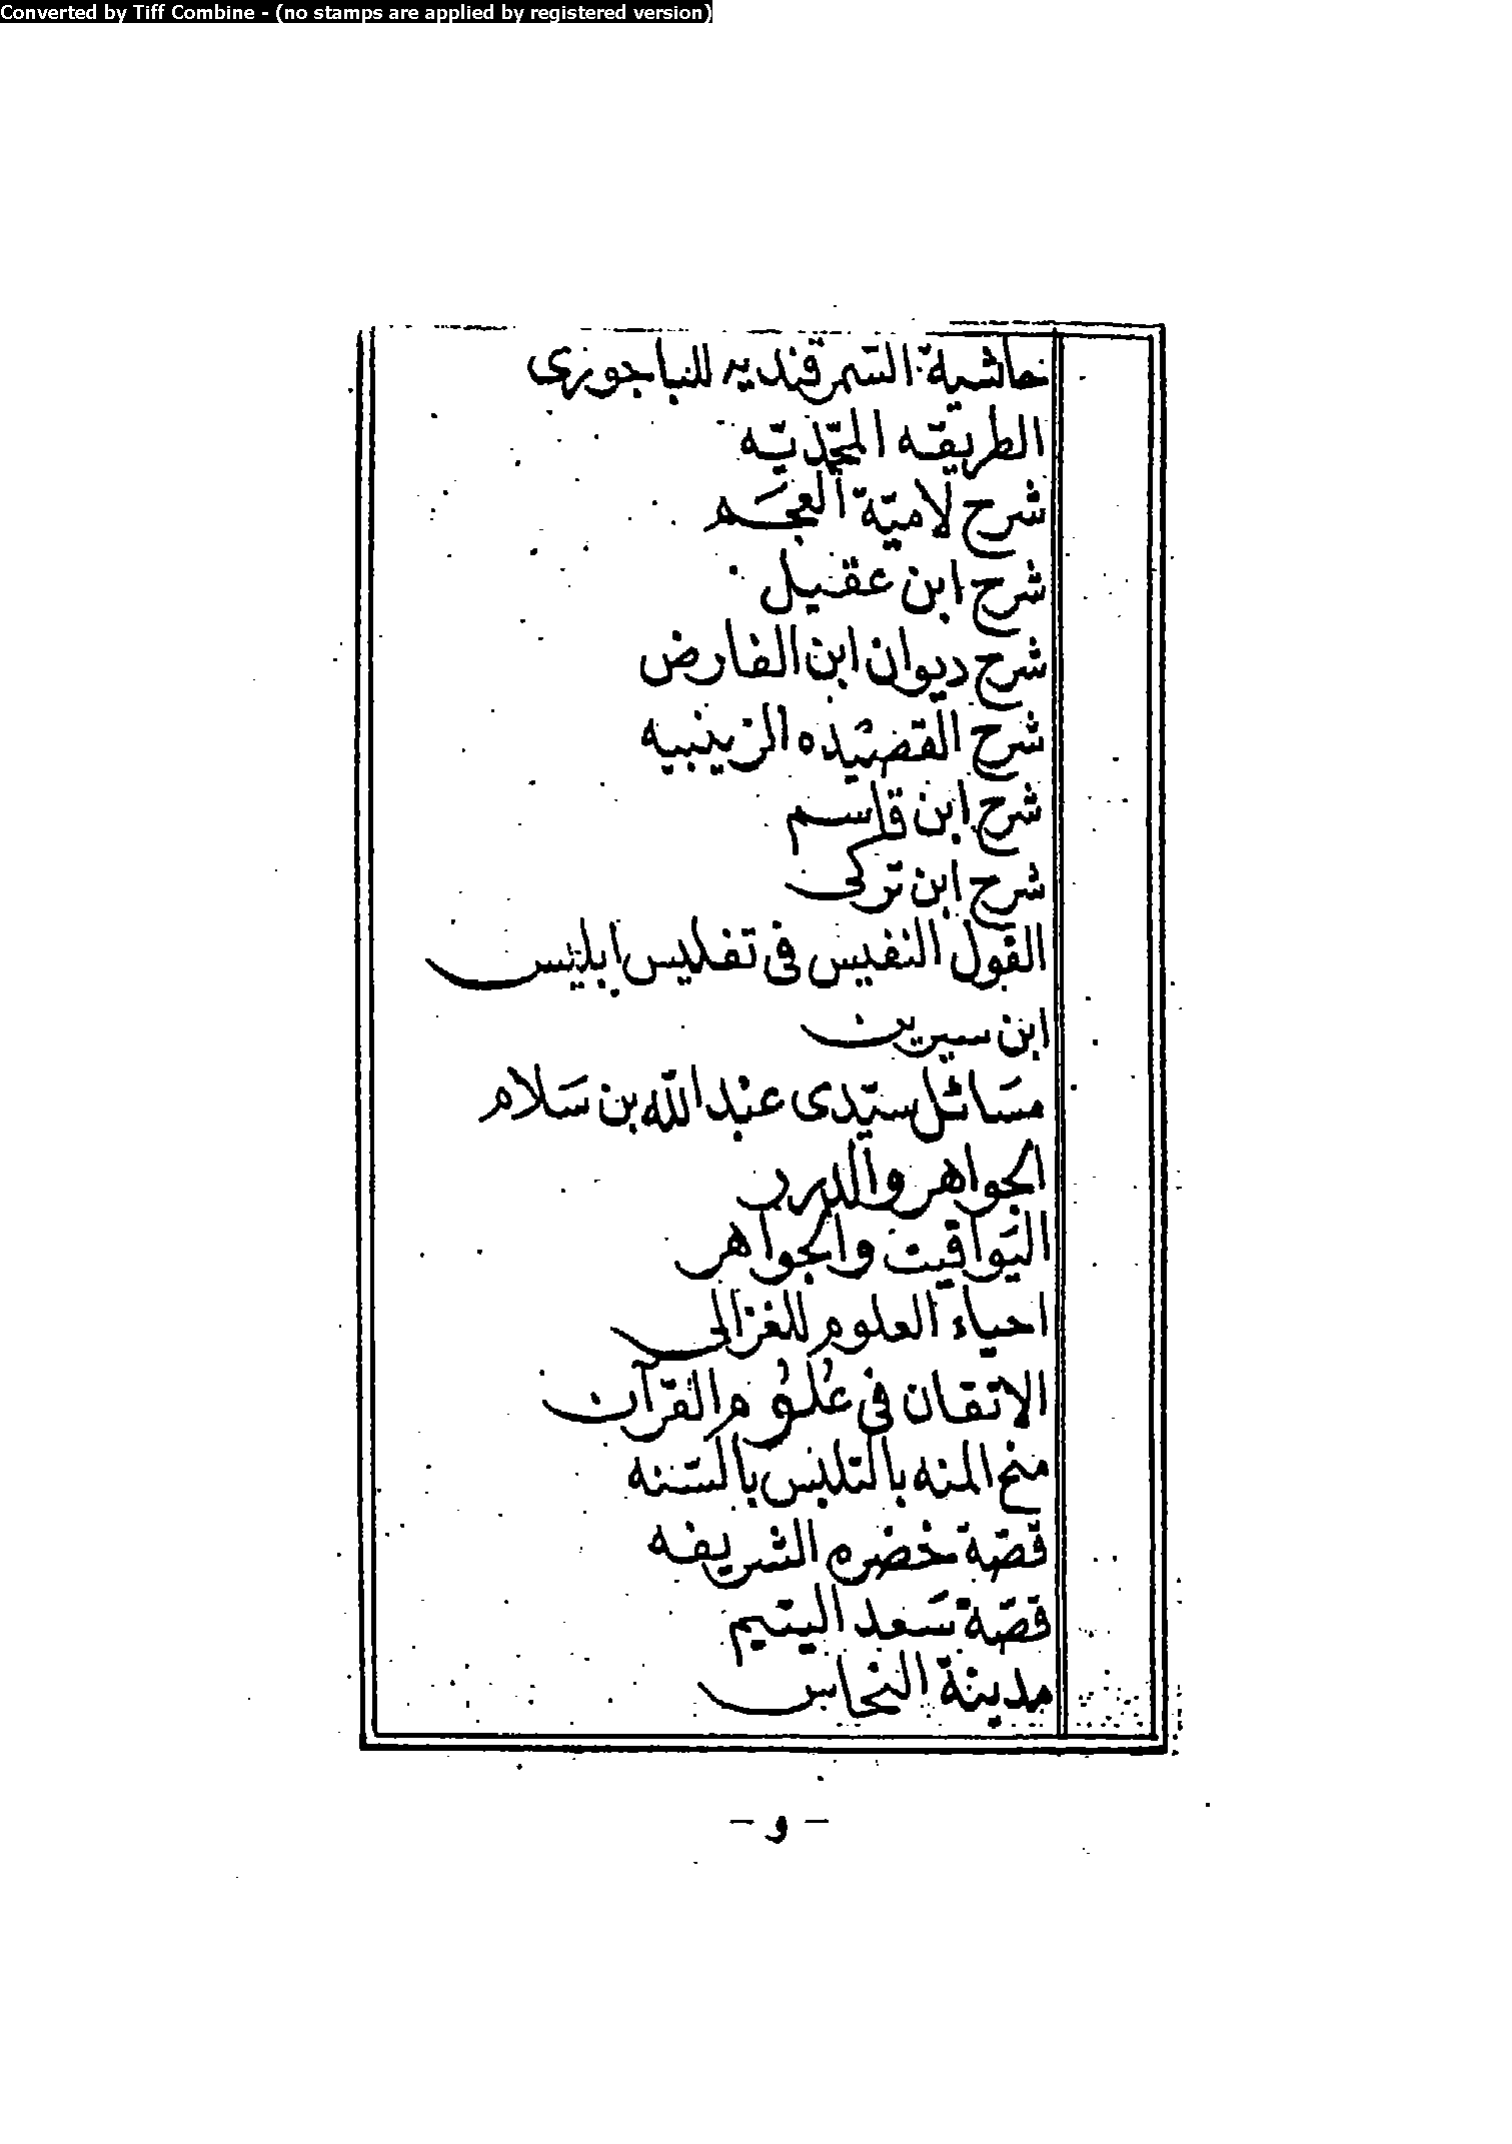 Converted by Tiff Combine - (no stamps are applied by registered version)
حاشية السمرقنديه للباجورى
الطريقه المحمّديّه
شرح لاميّة العجَم
شرح ابن عقيل
شرح ديوان ابن الفارض
شرح القصيده الزينبيه
شرح ابن قاسم
شرح ابن تركى
القول النفيس فى تفليس ابليس
ابن سيرين
مسَائل سيّدى عبد اللّه بن سَلام
الجواهر والدرر
اليَواقيت والجواهر
احياء العلوم للغزالى
الاتقان فى عُلوُم القرآن
منح المنه بالتلبس بالسّنه
قصّة خضره الشريفه
قصّة سَعد اليتيم
مدينة النحاس
– و –